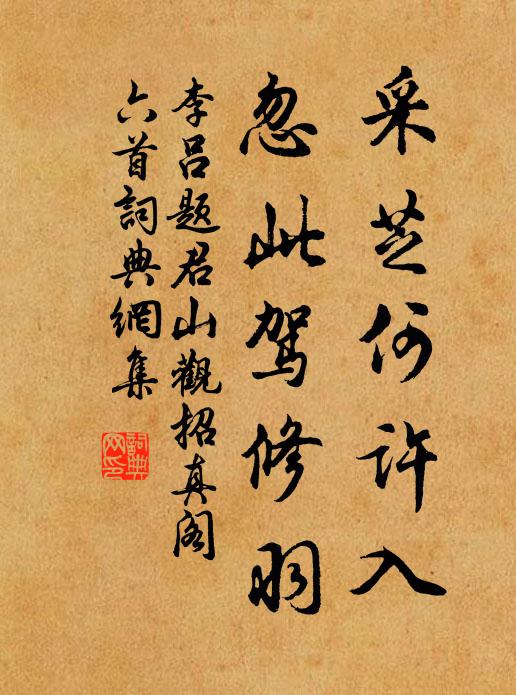 采芝何许入
忽此驾修羽
李吕题君山觀招真阁
六首詞典網集
詞典
网印